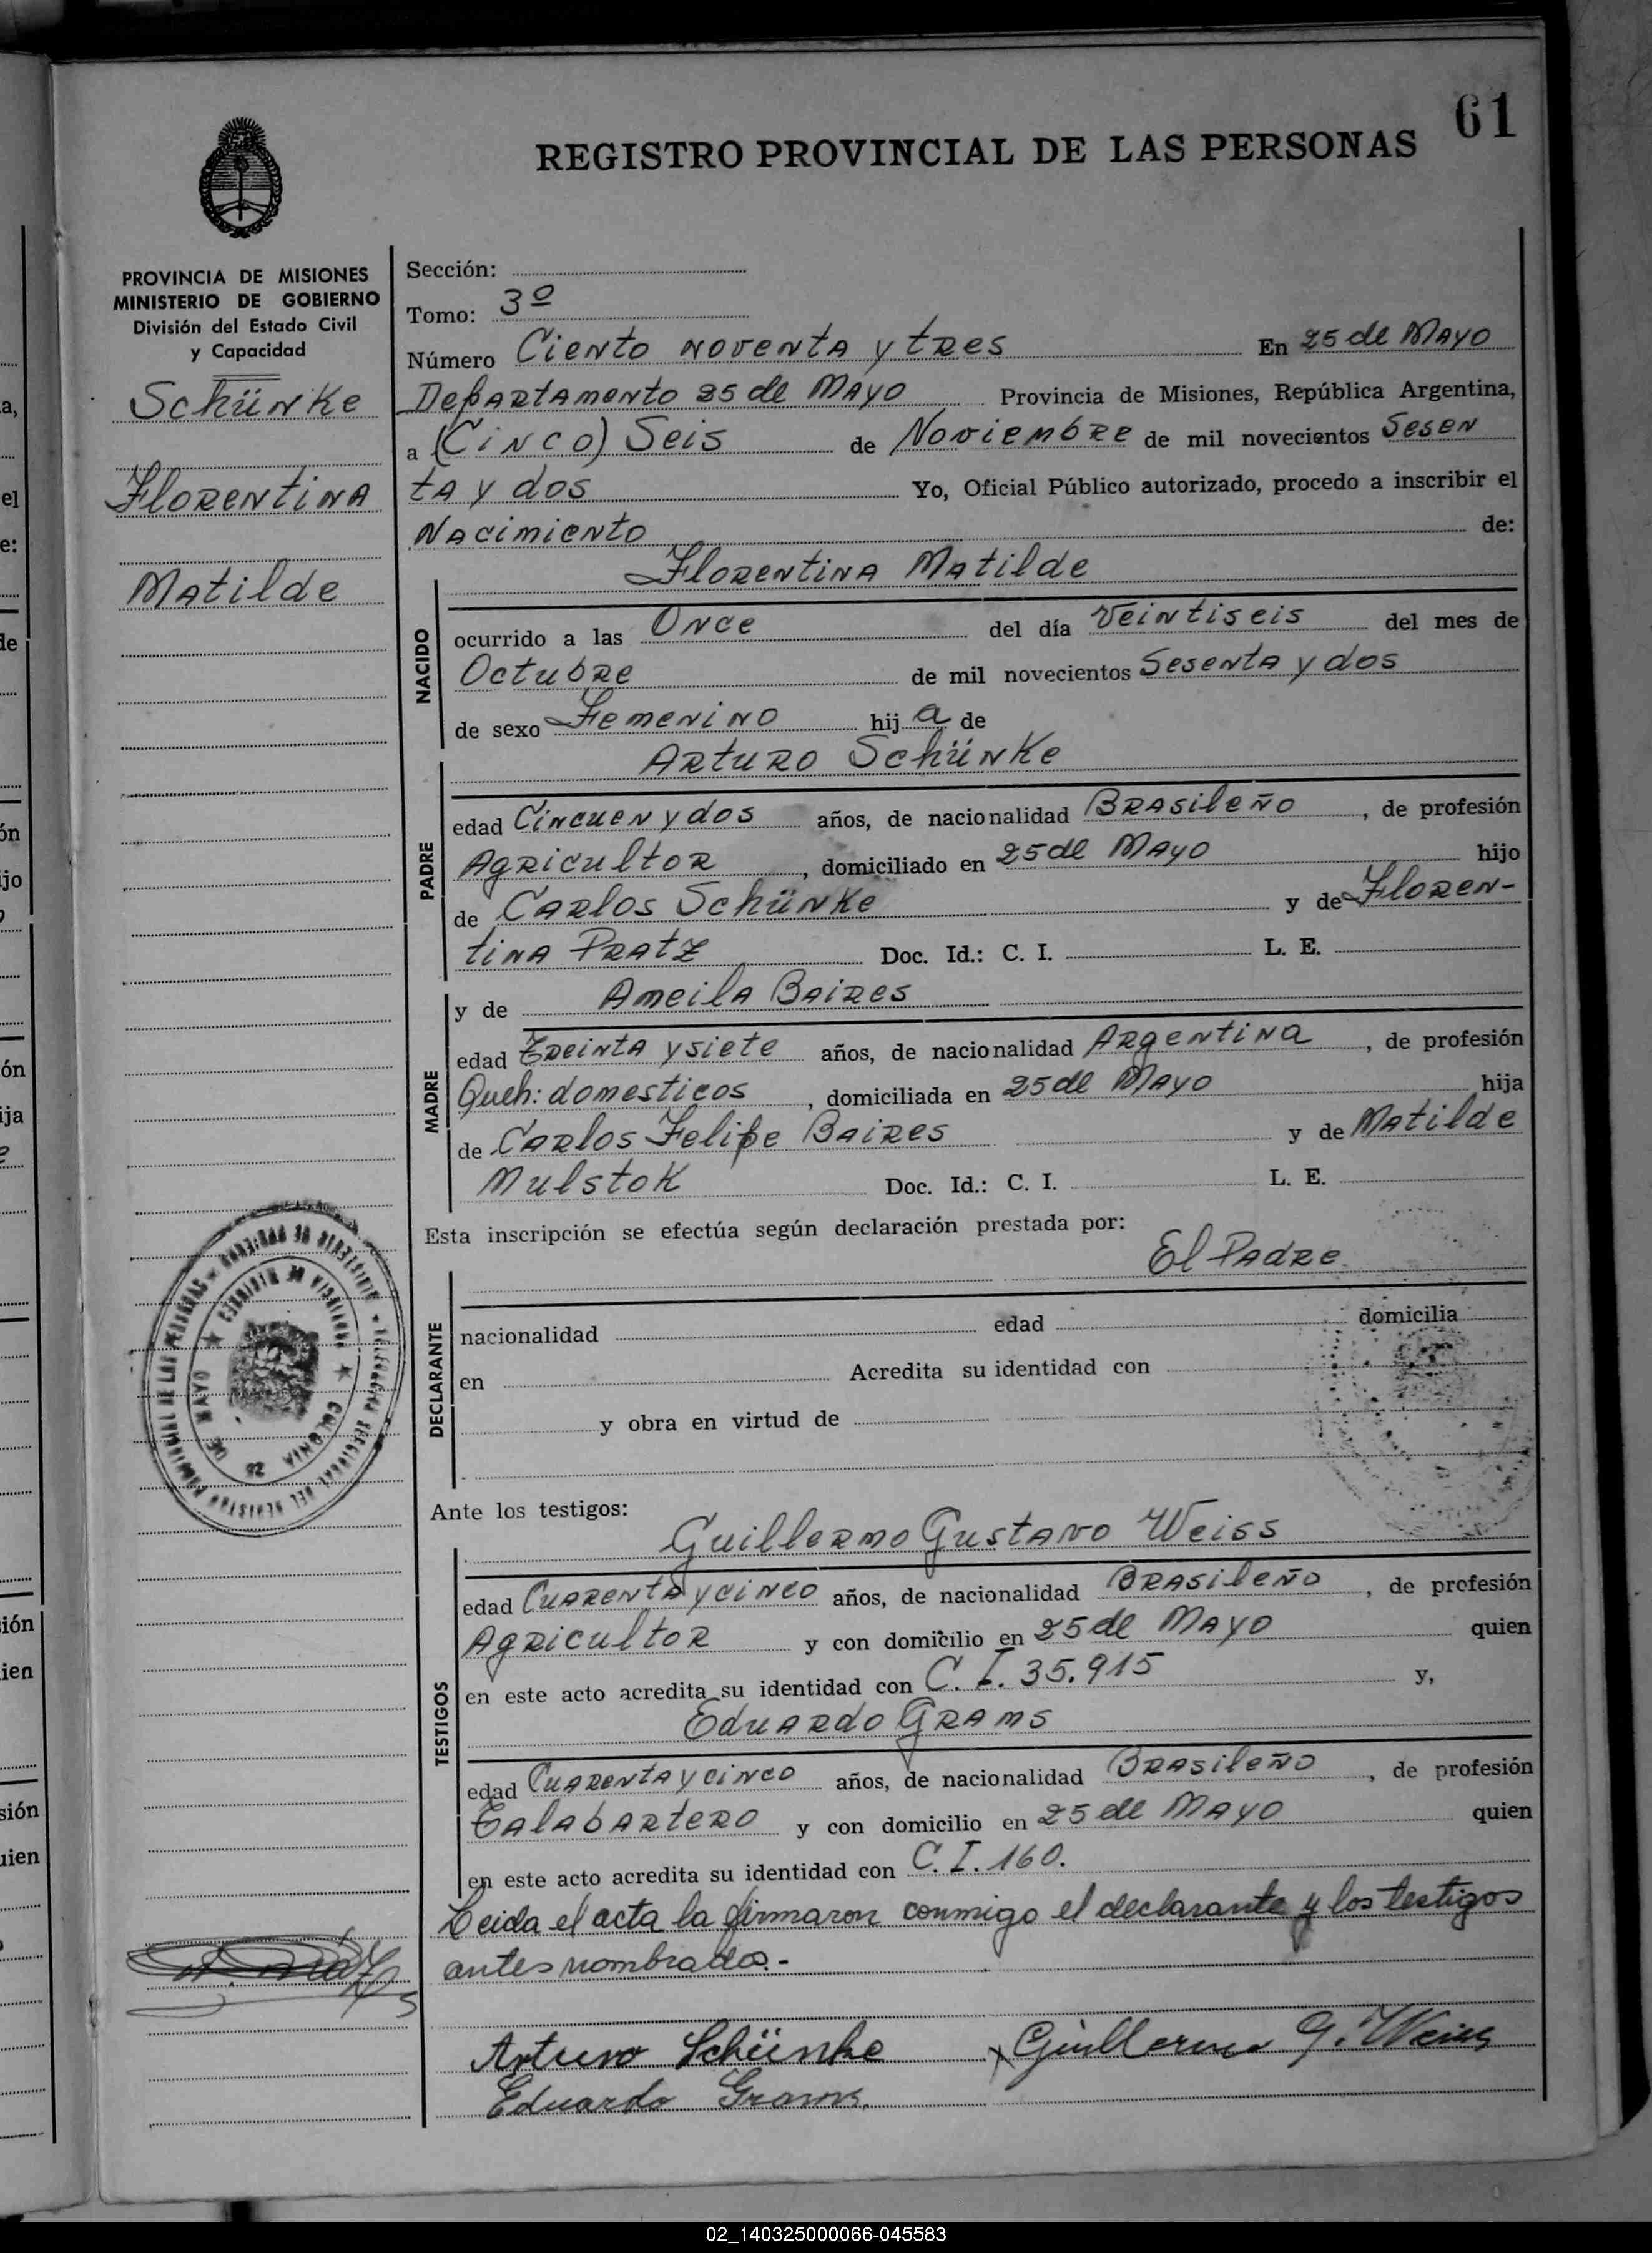 61
REGISTRO PROVINCIAL DE LAS PERSONAS
PROVINCIA DE MISIONES
MINISTERIO DE GOBIERNO
División del Estado Civil
y Capacidad
Schünke
Florentina
Matilde
Sección:
Tomo: 3º
Número Ciento noventa y tres En 25 de Mayo
Departamento 25 de Mayo Provincia de Misiones, República Argentina,
a (Cinco) Seis de Noviembre de mil novecientos Sesen
ta y dos Yo, Oficial Público autorizado, procedo a inscribir el
Nacimiento de:
Florentina Matilde
NACIDO
ocurrido a las Once del día Veintiseis del mes de
Octubre de mil novecientos Sesenta y dos
de sexo Femenino hij a de
Arturo Schünke
PADRE
edad Cincuen y dos años, de nacionalidad Brasileño, de profesión
Agricultor, domiciliado en 25 de Mayo hijo
de Carlos Schünke y de Floren-
tina Pratz Doc. Id.: C. I. L. E.
y de Ameila Baires
MADRE
edad Treinta y siete años, de nacionalidad Argentina, de profesión
Queh: domesticos, domiciliada en 25 de Mayo hija
de Carlos Felipe Baires y de Matilde
Mulstok Doc. Id.: C. I. L. E.
Esta inscripción se efectúa según declaración prestada por:
El Padre
DECLARANTE
nacionalidad edad domicilia
en Acredita su identidad con
y obra en virtud de
Ante los testigos:
Guillermo Gustavo Weiss
TESTIGOS
edad Cuarenta y cinco años, de nacionalidad Brasileño, de profesión
Agricultor y con domicilio en 25 de Mayo quien
en este acto acredita su identidad con C. I. 35.915 y,
Eduardo Grams
edad Cuarenta y cinco años, de nacionalidad Brasileño, de profesión
Talabartero y con domicilio en 25 de Mayo quien
en este acto acredita su identidad con C. I. 160.
Leida el acta la firmaron conmigo el declarante y los testigos
antes nombrados.-
Arturo Schünke Guillermo G. Weiss
Eduardo Grams.
02_140325000066-045583